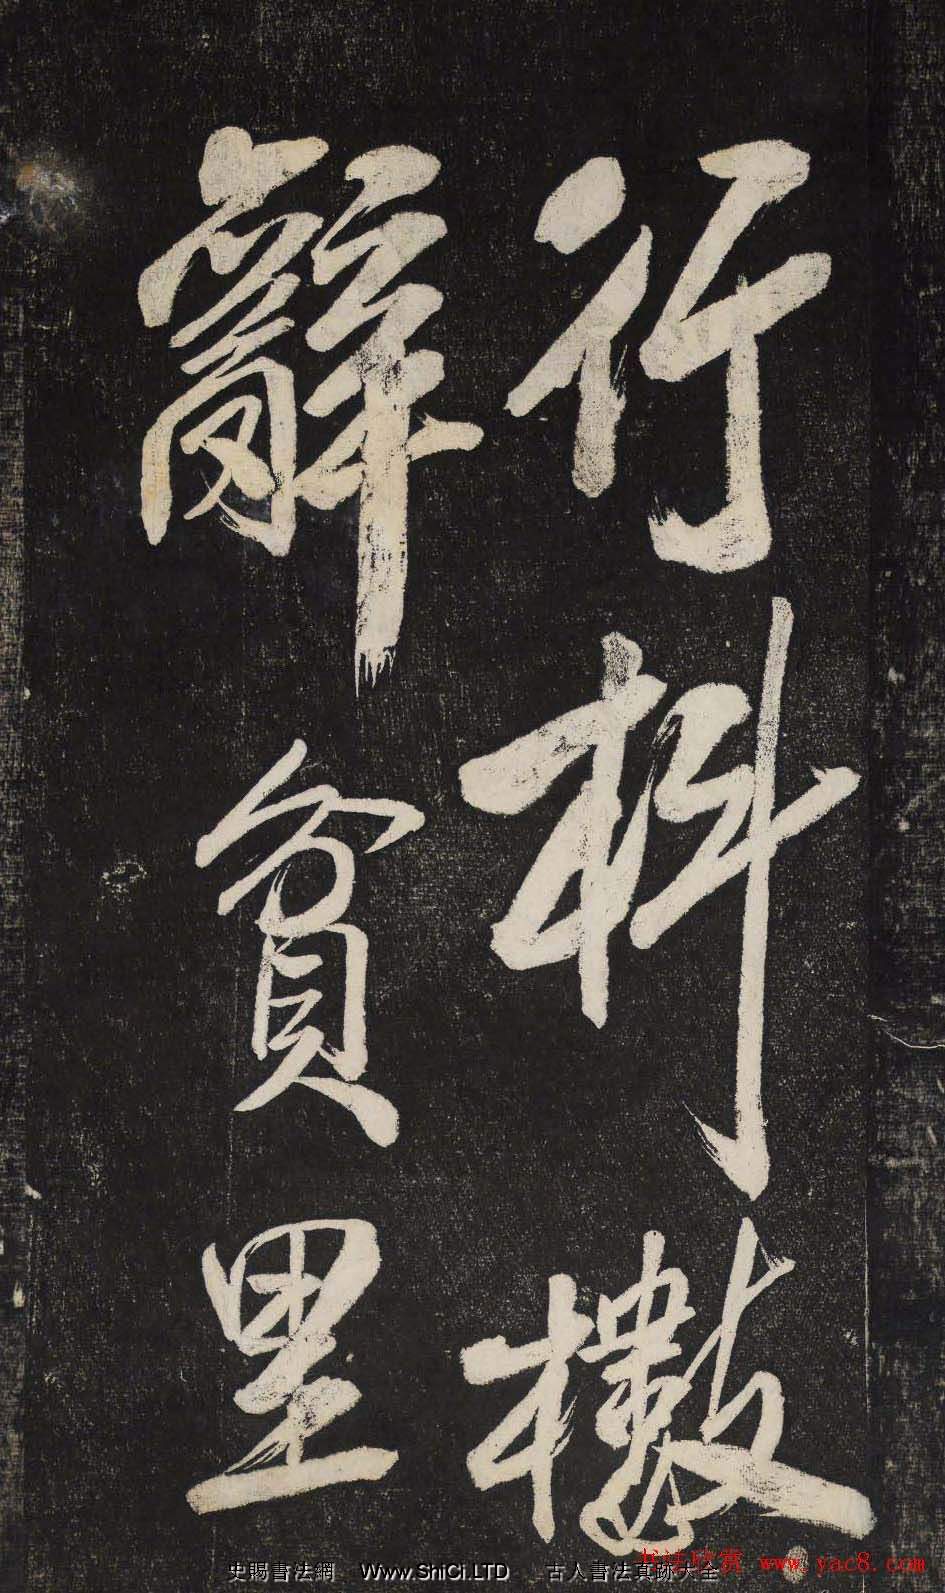 行科檄
辭貧里
书法欣赏 www.yac8.com
史賜書法網 WwW.ShiCi.LTD 古人書法真跡大全